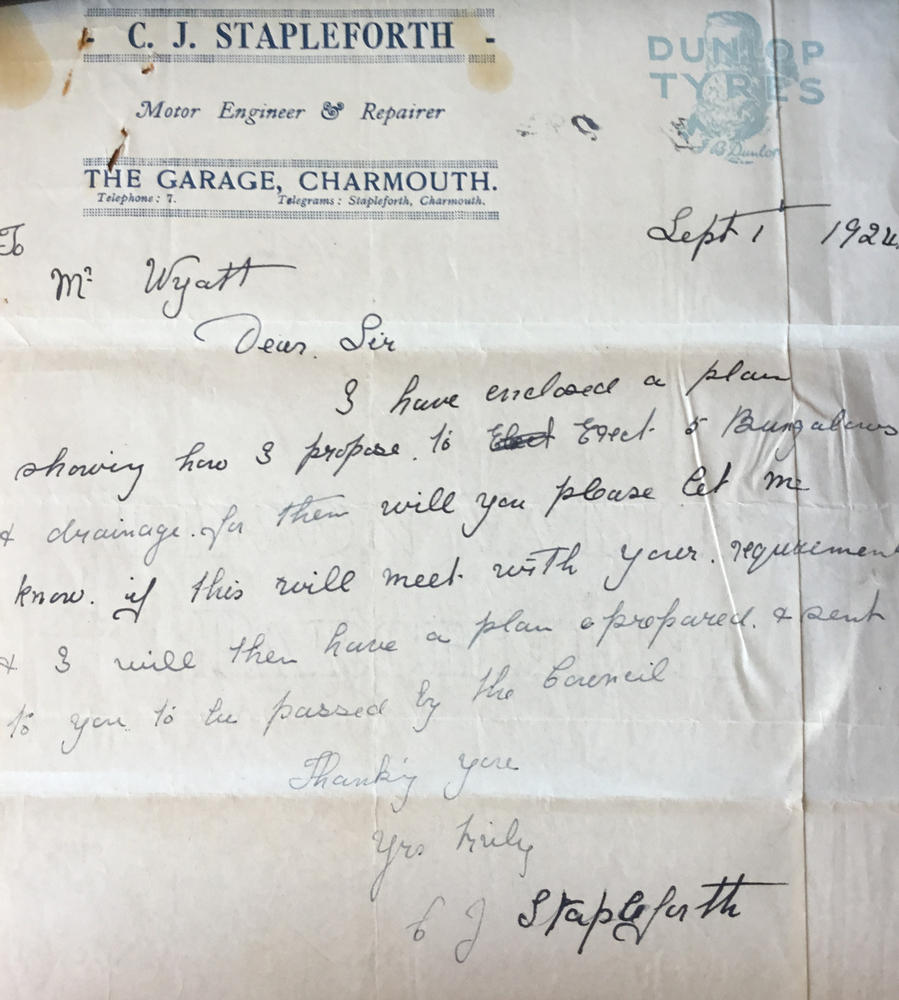 - C. J. STAPLEFORTH -
DUNLOP
TYRES
Motor Engineer & Repairer
J B Dunlop
THE GARAGE, CHARMOUTH.
Telephone: 7. Telegrams: Stapleforth, Charmouth.
To
Sept 1 1924
Mr Wyatt
Dear Sir
I have enclosed a plan
showing how I propose to Erect 5 Bungalows
& drainage for them will you please let me
know. if this will meet with your requirement
& I will then have a plan prepared. & sent
to you to be passed by the Council
Thank'g you
Yrs truly
C J Stapleforth